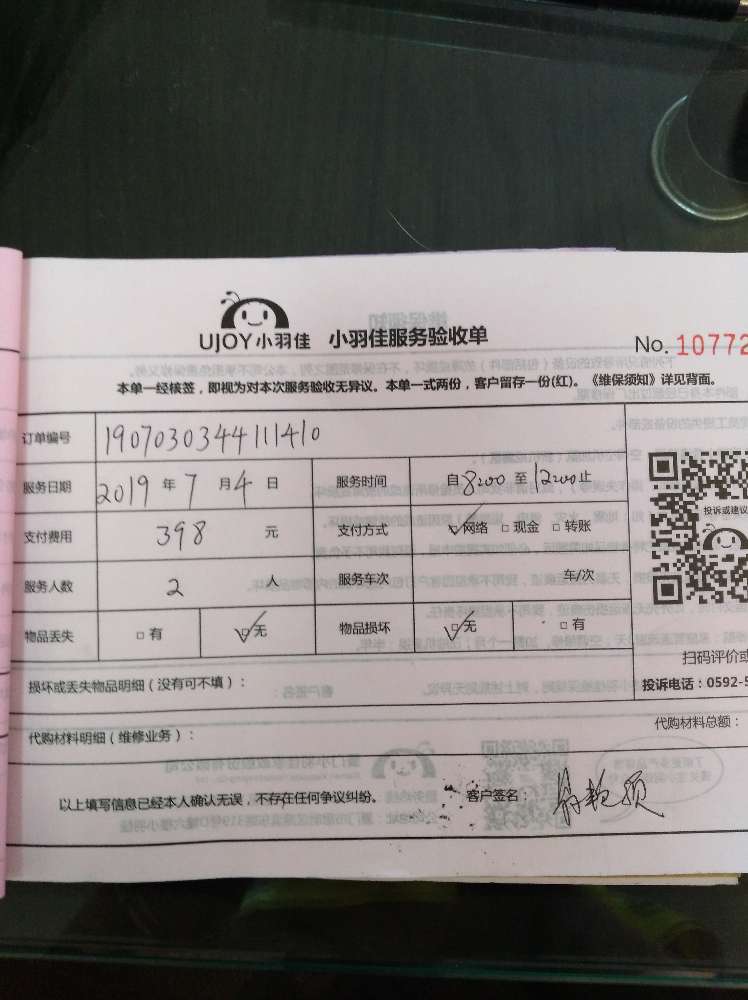 UJOY小羽佳 小羽佳服务验收单
No. 10772
本单一经核签，即视为对本次服务验收无异议。本单一式两份，客户留存一份(红)。《维保须知》详见背面。
订单编号 190703034411410
服务日期 2019 年 7 月 4 日 服务时间 自 8:00 至 12:00 止
支付费用 398 元 支付方式 ☑网络 □现金 □转账
服务人数 2 人 服务车次 车/次
物品丢失 □有 ☑无 物品损坏 ☑无 □有
投诉或建议
扫码评价或
投诉电话：0592-5
损坏或丢失物品明细（没有可不填）：
代购材料明细（维修业务）： 代购材料总额：
以上填写信息已经本人确认无误，不存在任何争议纠纷。 客户签名：